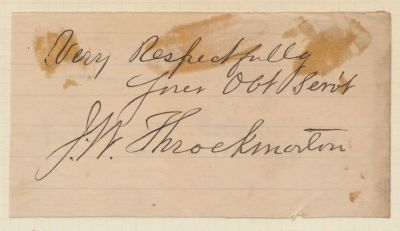 Very Respectfully
Your Obt Servt
J. W. Throckmorton